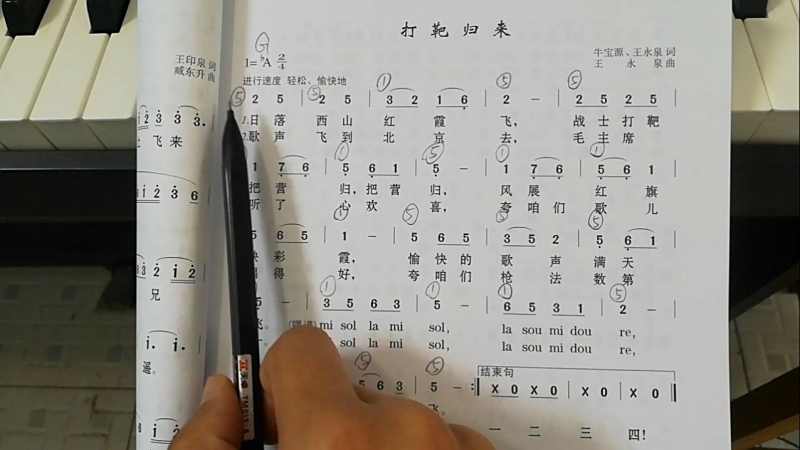 打靶归来
G
1=♭A 2/4
牛宝源、王永泉 词
王永泉 曲
进行速度 轻松、愉快地
⑤ ⑤ ① ⑤ ⑤
2 5 | 2 5 | 3 2 1 6 | 2 - | 2 5 2 5
1.日 落 西 山 红 霞 飞, 战 士 打 靶
2.歌 声 飞 到 北 京 去, 毛 主 席
① ⑤ ①
1 7 6 | 5 6 1 | 5 - | 1 7 6 | 5 5
把 营 归,把 营 归, 风 展 红 旗
听 了 心 欢 喜, 夸 咱 们 歌 儿
① ⑤ ⑤
5 6 5 | 1 - | 5 6 5 | 3 5 2 | 5 6 1
彩 霞, 愉 快 的 歌 声 满 天
得 好, 夸 咱 们 枪 法 数 第
① ① ① ⑤
5 - | 3 5 6 3 | 5 - | 6 5 3 1 | 2 -
飞。 mi sol la mi sol, la sou mi dou re,
la mi sol, la sou mi dou re,
⑤ ⑤ 结束句
5 6 3 | 5 - :‖ X 0 X 0 | X 0 | X 0 ‖
飞。
一 二 三 四!
王印泉 词
臧东升 曲
飞 来
兄